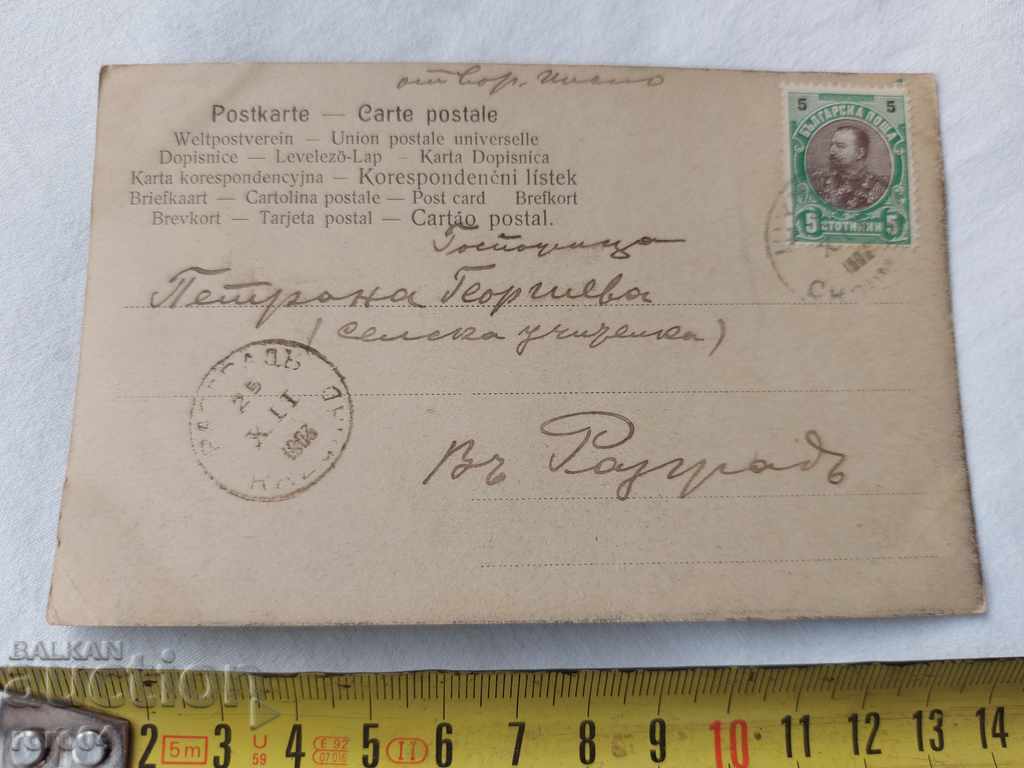 отвор. писмо
Postkarte — Carte postale
Weltpostverein — Union postale universelle
Dopisnice — Levelezö-Lap — Karta Dopisnica
Karta korespondencyjna — Korespondenčni lístek
Briefkaart — Cartolina postale — Post card Brefkort
Brevkort — Tarjeta postal — Cartáo postal.
5 5
БЪЛГАРСКА ПОЩА
5 СТОТИНКИ 5
Госпожица
Петрана Георгиева
(селска учителка)
РАЗГРАДЪ
25
XII
1903
Въ Разградъ
BALKAN
auction
2 5m 3 U 59 4 E 92 07 016 5 II 6 7 8 9 10 11 12 13 14